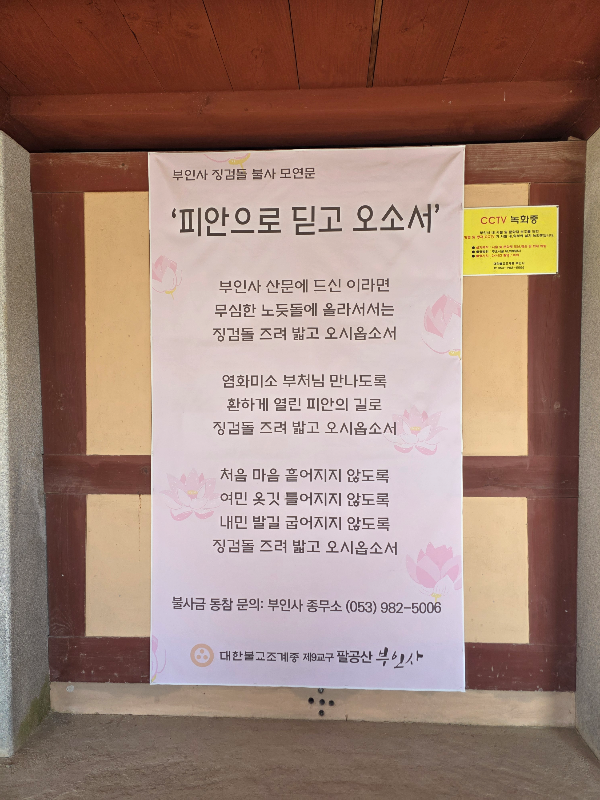 부인사 징검돌 불사 모연문
‘피안으로 딛고 오소서’
부인사 산문에 드신 이라면
무심한 노둣돌에 올라서서는
징검돌 즈려 밟고 오시옵소서
염화미소 부처님 만나도록
환하게 열린 피안의 길로
징검돌 즈려 밟고 오시옵소서
처음 마음 흩어지지 않도록
여민 옷깃 틀어지지 않도록
내민 발길 굽어지지 않도록
징검돌 즈려 밟고 오시옵소서
불사금 동참 문의: 부인사 종무소 (053) 982-5006
대한불교조계종 제9교구 팔공산 부인사
CCTV 녹화중